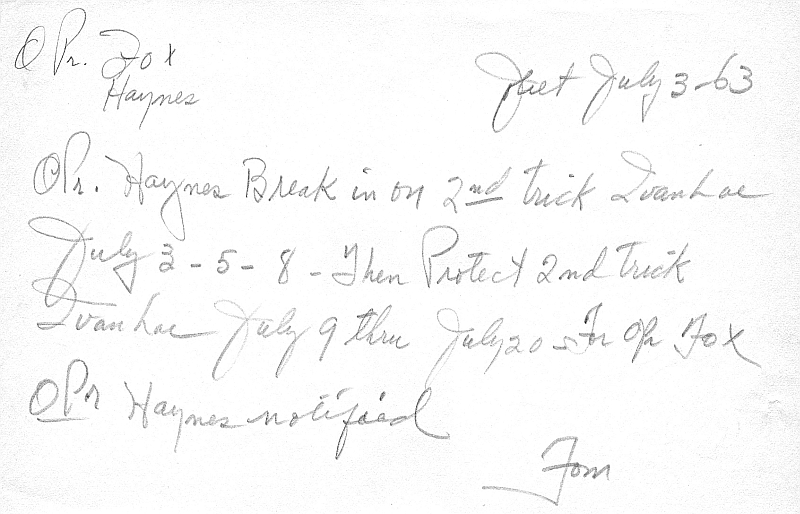 OPr. Fox
Haynes
Jct July 3-63
OPr. Haynes Break in on 2nd trick Ivanhoe
July 3-5-8-Then Protect 2nd trick
Ivanhoe July 9 thru July 20 - For Opr Fox
OPr Haynes notified
Tom